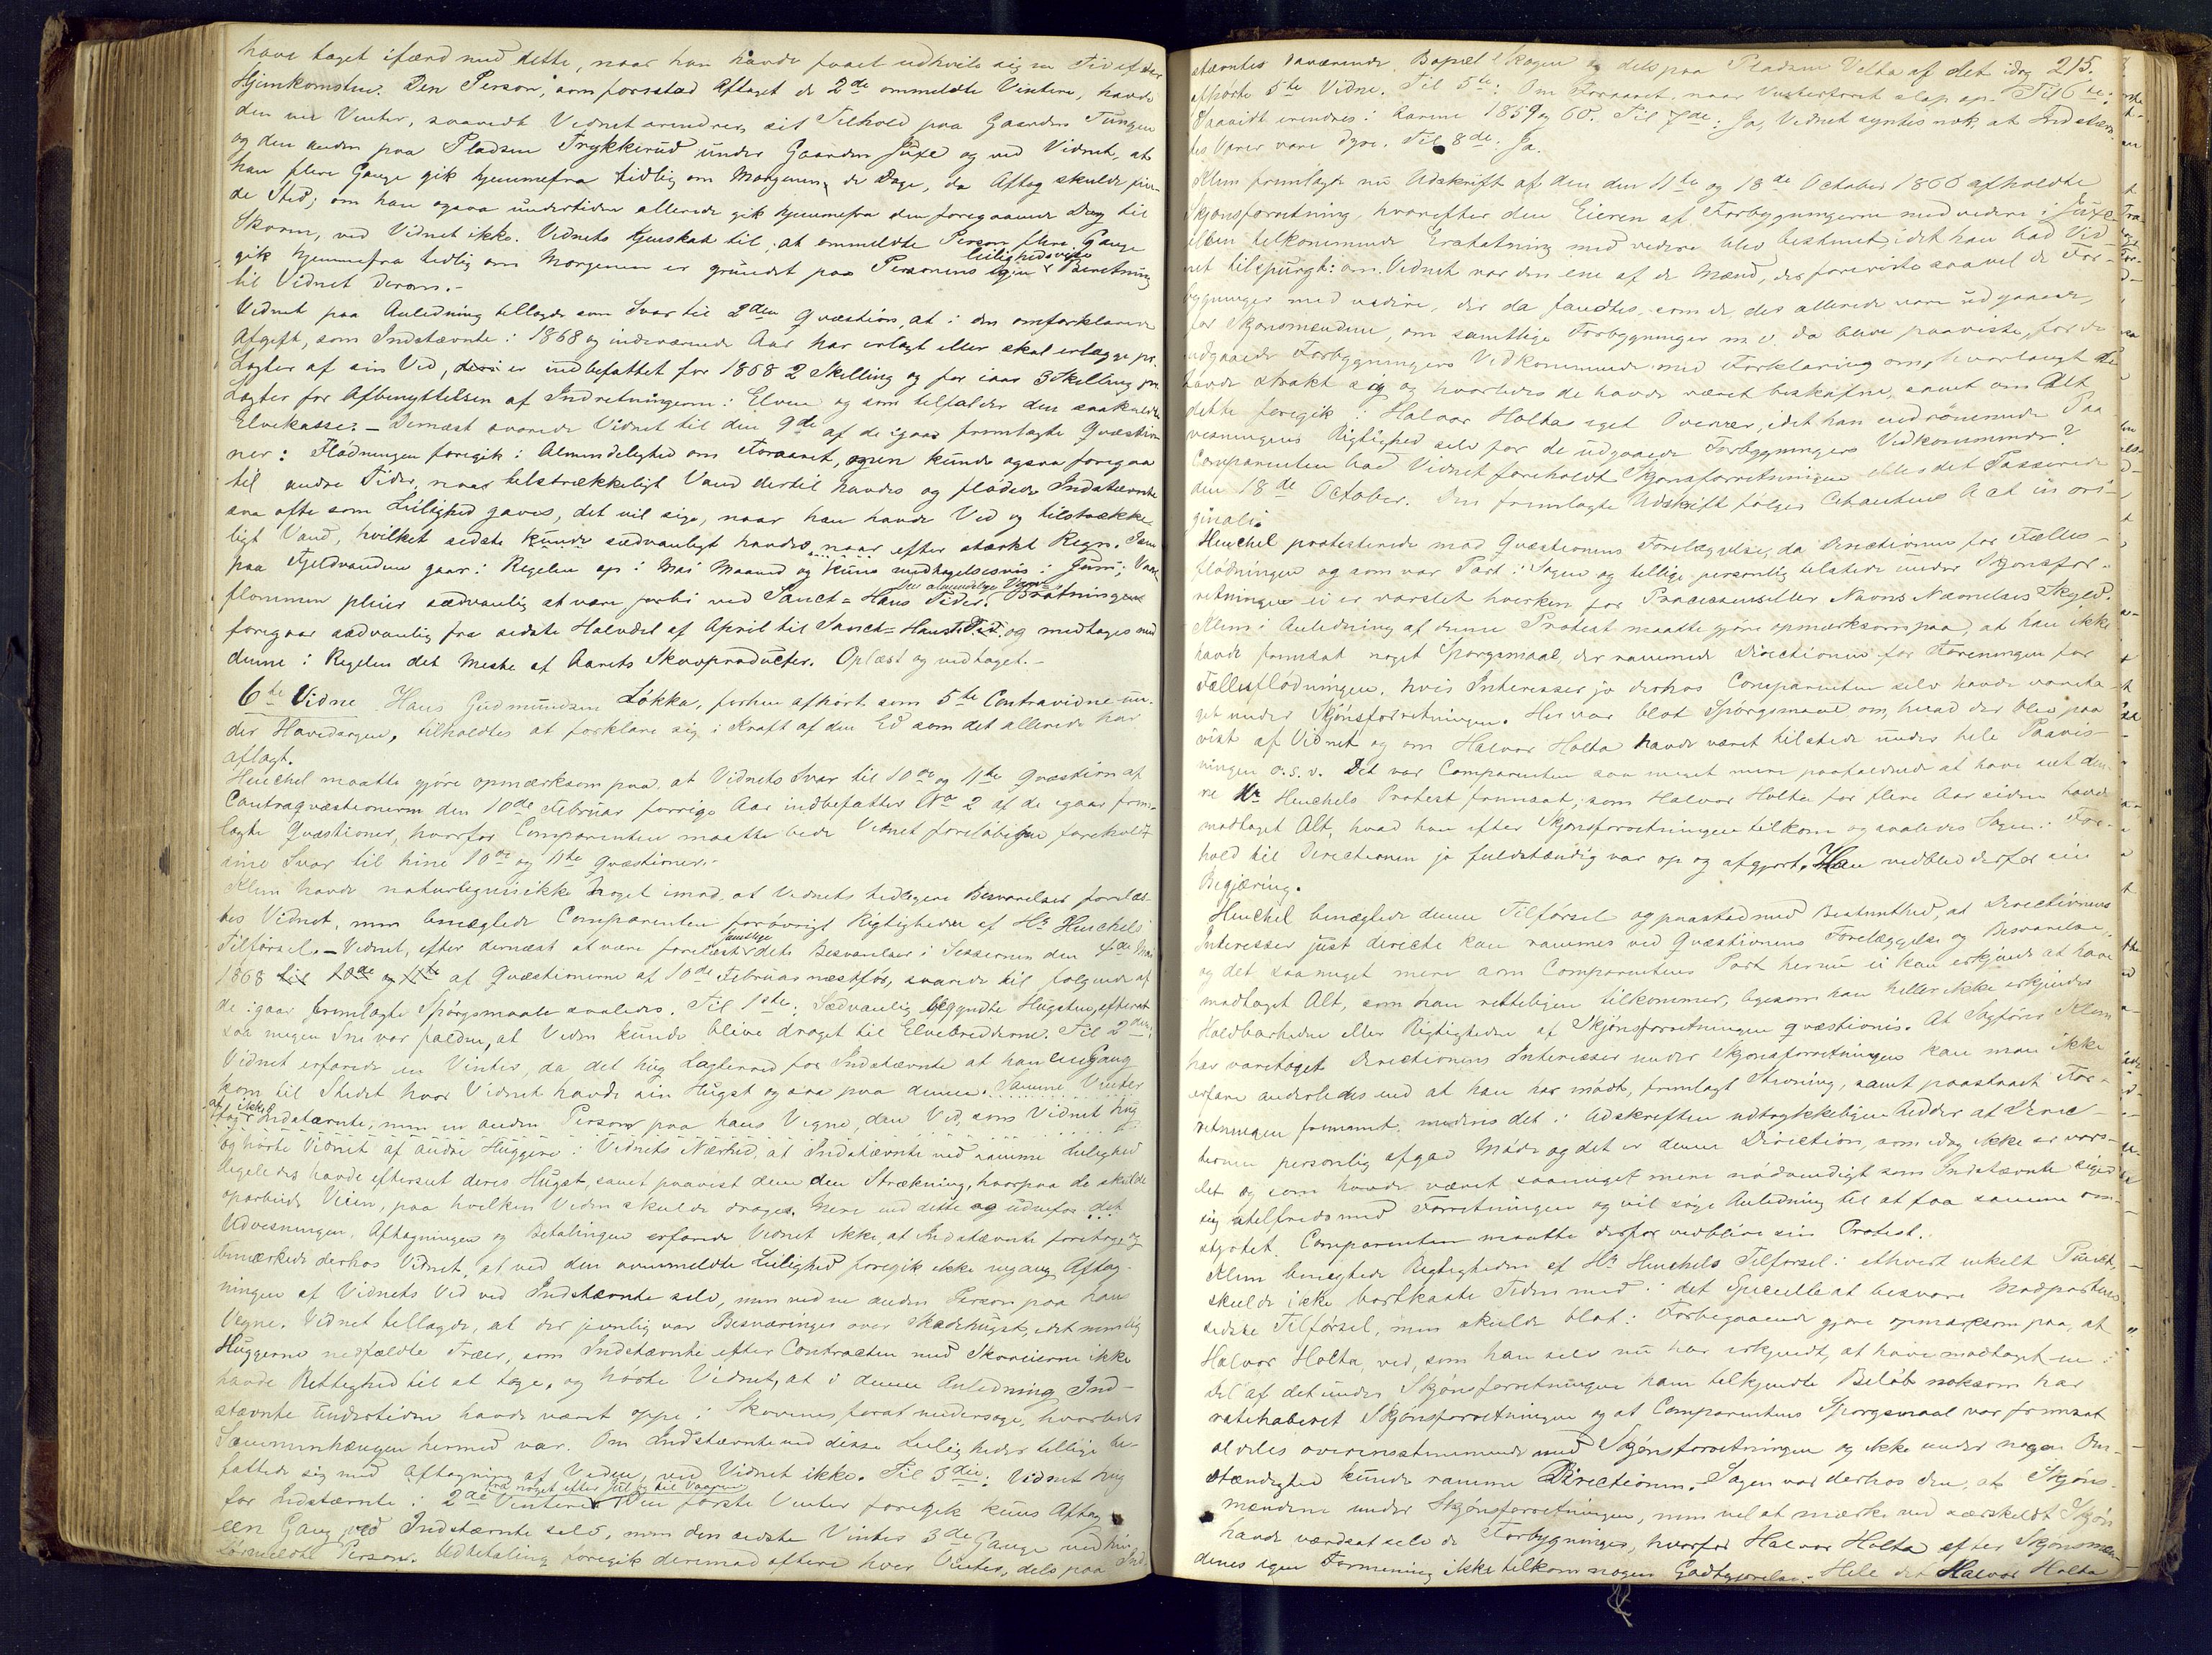 have taget ifærd med dette, naar han havde faaet udhvile sig en Tid efter
Hjemkomsten. Den Person, som forestod Aftaget de 2de ommeldte Vintere, havde
den ene Vinter, saavidt Vidnet erindrer sit Tilhold paa Gaarden Tungen
og den anden paa Pladsen Trykkerud under Gaarden Juxe og ved Vidnet, at
han flere Gange gik hjemmefra tidlig om Morgenen de Dage, da Aftag skulde
de Sted; om han ogsaa undertiden allerede gik hjemmefra den foregaaende Dag til
Skoven, ved Vidnet ikke. Vidnets Kjenskab til, at ommeldte Person flere Gange
gik hjemmefra tidlig om Morgenen er grundet paa Personens egen leilighedsvise Beretning
til Vidnet derom.-
Vidnet paa Anledning tillagde som Svar til 2den Qvæstion, at i den omforklarede
Afgift, som Indstævnte i 1868 og indeværende Aar har erlagt eller skal erlægge pr.
Lagter af sin Ved, er indbefattet for 1868 2 Skilling og for iaar 3 Skilling pr
Lagter for Afbenyttelsen af Indretningerne i Elven og som tilfalder den saakaldte
Elvekasse.- Dernæst svarede Vidnet til den 9de af de igaar fremlagte Qvæstio-
ner: Flødningen foregik i Almindelighed om Foraaret, men kunde ogsaa foregaa
til andre Tider, naar tilstrækkeligt Vand dertil havdes og flødede Indstævnte
saa ofte som Leilighed gaves, det vil sige, naar han havde Ved og tilstrække-
ligt Vand, hvilket sidste kunde sædvanligt havdes naar efter stærkt Regn. Isen
paa Fjeldvandene gaar i Regelen op i Mai Maaned og kuns undtagelsesvis i Juni; Vaar-
flommen pleier sædvanlig at være forbi ved Sanct-Hans Tider. Den almindelige Vaar-Brøtningen
foregaar sædvanlig fra sidste Halvdel af April til Sanct-Hans Tid og medtages med
denne i Regelen det Meste af Aarets Skovproducter. Oplæst og vedtaget.-
6te Vidne Hans Gudmundsen Løkka, forhen afhørt som 5te Contravidne un-
der Hovedsagen, tilholdtes at forklare sig i Kraft af den Ed som det allerede har
aflagt.
Henchel maatte gjøre opmærksom paa, at Vidnets Svar til 10de og 11te Qvæstion af
Contraqvæstionerne den 10de Februar forrige Aar indbefatter No 2 af de igaar frem-
lagte Qvæstioner, hvorfor Comparenten maatte bede Vidnet foreløbigen foreholdt
sine Svar til hine 10de og 11te Qvæstioner.-
Klem havde naturligviis ikke Noget imod, at Vidnets tidligere Besvarelser forelæs-
tes Vidnet, men benægtede Comparenten forøvrigt Rigtigheden af Hr Henchels
Tilførsel.- Vidnet, efter dernæst at være forelæst samtlige dets Besvarelser i Sessionen den 4de Mai
1868 til 10de og 11te af Qvæstionerne af 10de Februar næstfør, svarede til følgende af
de igaar fremlagte Spørgsmaale saaledes. Til 1ste: Sædvanlig begyndte Hugsten, efterat
saa megen Sne var falden, at Veden kunde blive draget til Elvebredderne. Til 2den:
Vidnet erfarede en Vinter, da det hug Lagterved for Indstævnte at han en Gang
kom til Stedet hvor Vidnet havde sin Hugst og saa paa denne. Samme Vinter
tog ikke Indstævnte, men en anden Person paa hans Vegne, den Ved, som Vidnet hug
og hørte Vidnet af andre Huggere i Vidnets Nærhed, at Indstævnte ved samme Leilighed
ligeledes havde efterseet deres Hugst, samt paavist dem den Strækning, hvorpaa de skulde
oparbeide Veien, paa hvilken Veden skulde drages. Mere end dette og udenfor det
Udvisningen, Aftagningen og Betalingen erfarede Vidnet ikke, at Indstævnte foretog og
bemærkede derhos Vidnet, at ved den ovenmeldte Leilighed foregik ikke engang Aftag-
ningen af Vidnets Ved ved Indstævnte selv, men ved en anden Person paa hans
Vegne. Vidnet tillagde, at der jevnlig var Besværinger over Skadehugst, idet nemlig
Huggerne nedfældte Træer, som Indstævnte efter Contracten med Skoveierne ikke
havde Rettighed til at tage, og hørte Vidnet, at i denne Anledning Ind-
stævnte undertiden havde været oppe i Skovene, forat undersøge, hvorledes
Sammenhængen hermed var. Om Indstævnte ved disse Leiligheder tillige be-
fattede sig med Aftagning af Veden, ved Vidnet ikke. Til 3die: Vidnet hug
for Indstævnte i 2de Vintere fra noget efter Jul og til Vaaren. Den første Vinter foregik kuns Aftag
een Gang ved Indstævnte selv, men den sidste Vinter 3de Gange ved hin
førmeldte Person. Udbetaling foregik derimod oftere hver Vinter, dels paa Ind-
215.
stævntes daværende Bopæl i Skogen og dels paa Pladsen Velta af det idag
afhørte 5te Vidne. Til 5te: Om Foraaret, naar Vinterføret slap op. Til 6te:
Saavidt erindres i Aarene 1859 og 60. Til 7de: Ja, Vidnet syntes nok, at Indstævn-
tes Varer vare dyre. Til 8de: Ja.
Klem fremlagde nu Udskrift af den den 11te og 18de October 1866 afholdte
Skjønsforretning, hvorefter den Eieren af Forbygningerne med videre i Juxe-
elven tilkommende Erstatning med videre blev bestemt, idet han bad Vid-
net tilspurgt: om Vidnet var den ene af de Mænd, der foreviste saavel de For-
bygninger med videre, der da fandtes, som de der allerede vare udgaaede,
for Skjønsmændene, om samtlige Forbygninger m. v. da bleve paaviste, for de
udgaaede Forbygningers Vedkommende med Forklaring om, hvorlangt de
havde strakt sig og hvorledes de havde været beskafne, samt om Alt
dette foregik i Halvor Holtas eget Overvær, idet han indrømmede Paa-
visningens Rigtighed selv for de udgaaede Forbygningers Vedkommende?
Comparenten bad Vidnet foreholdt Skjønsforretningen eller det Passerede
den 18de October. Den fremlagte Udskrift følger Citantens Act in ori-
ginali.
Henchel protesterede mod Qvæstionens Forelæggelse, da Directionen for Fælles-
flødningen og som var Part i Sagen og tillige personlig tilstede under Skjønsfor-
retningen ei er varslet hverken for Processens eller Navns Nævnelses Skyld.
Klem i Anledning af denne Protest maatte gjøre opmærksom paa, at han ikke
havde fremsat noget Spørgsmaal, der rammede Directionen for Foreningen for
Fællesflødningen, hvis Interesser jo derhos Comparenten selv havde vareta-
get under Skjønsforretningen. Her var blot Spørgsmaal om, hvad der blev paa-
vist af Vidnet og om Halvor Holta havde været tilstede under hele Paavis-
ningen o.s.v. Det var Comparenten saa meget mere paafaldende at have seet den-
ne Hr Henchels Protest fremsat, som Halvor Holta for flere Aar siden havde
modtaget Alt, hvad han efter Skjønsforretningen tilkom og saaledes Sagen i For-
hold til Directionen jo fuldstændig var op og afgjort. Han vedblev derfor sin
Begjæring.
Henchel benægtede denne Tilførsel og paastod med Bestemthed, at Directionens
Interesser just directe kan rammes ved Qvæstionens Forelæggelse og Besvarelse,
og det saameget mere som Comparentens Part herinu ei kan erkjende at have
modtaget Alt, som han retteligen tilkommer, ligesom han heller ikke erkjender
Holdbarheden eller Rigtigheden af Skjønsforretningen qvæstionis. At Sagfører Klem
har varetaget Directionens Interesser under Skjønsforretningen kan man ikke
erfare anderledes end at han har mødt, fremlagt Stevning, samt paastaaet For-
retningen fremmet, medens det i Udskriften udtrykkeligen hedder at Direc-
tionen personlig afgav Møde og det er denne Direction, som idag ikke er vars-
let og som havde været saameget mere nødvendigt som Indstævnte siger
sig utilfreds med Forretningen og vil søge Anledning til at faa samme om-
styrtet. Comparenten maatte derfor vedblive sin Protest.
Klem benægtede Rigtigheden af Hr Henchels Tilførsel i ethvert enkelt Punkt,
skulde ikke bortkaste Tiden med i det Specielle at besvare Modpartens
sidste Tilførsel, men skulde blot i Forbigaaende gjøre opmærksom paa, at
Halvor Holta, ved, som han selv nu har erkjendt, at have modtaget en
Del af det under Skjønsforretningen ham tilkjendte Beløb noksom har
ratihaberet Skjønsforretningen og at Comparentens Spørgsmaal var fremsat
aldeles overensstemmende med Skjønsforretningen og ikke under nogen Om-
stændighed kunde ramme Directionen. Sagen var derhos den, at Skjøns-
mændene under Skjønsforretningen, men vel at mærke ved særskildt Skjøn
havde værdsat selv de Forbygninger, hvorfor Halvor Holta efter Skjønsmæn-
denes egen Formening ikke tilkom nogen Godtgjørelse. Hele det Halvor Holta